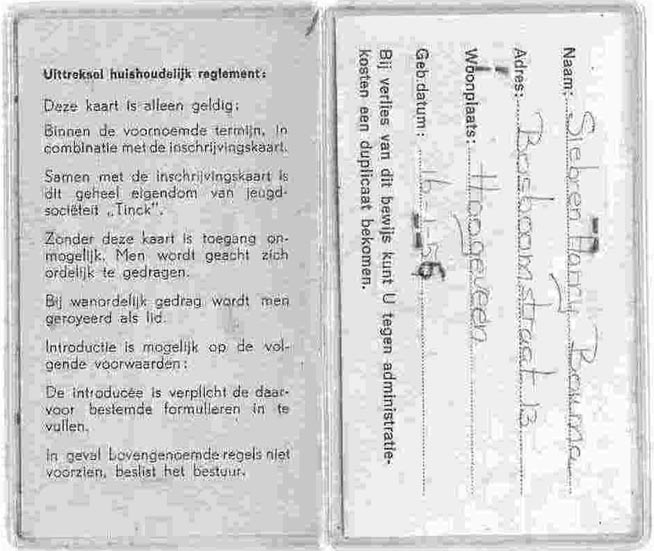 Uittreksel huishoudelijk reglement:
Deze kaart is alleen geldig:
Binnen de voornoemde termijn, in
combinatie met de inschrijvingskaart.
Samen met de inschrijvingskaart is
dit geheel eigendom van jeugd-
sociëteit „Tinck”.
Zonder deze kaart is toegang on-
mogelijk. Men wordt geacht zich
ordelijk te gedragen.
Bij wanordelijk gedrag wordt men
geroyeerd als lid.
Introductie is mogelijk op de vol-
gende voorwaarden:
De introducée is verplicht de daar-
voor bestemde formulieren in te
vullen.
In geval bovengenoemde regels niet
voorzien, beslist het bestuur.
Naam: Siebren Harry
Adres: Bosboomstraat 13
Woonplaats: Hoogeveen
Geb.datum: 16-1-56
Bij verlies van dit bewijs kunt U tegen administratie-
kosten een duplicaat bekomen.